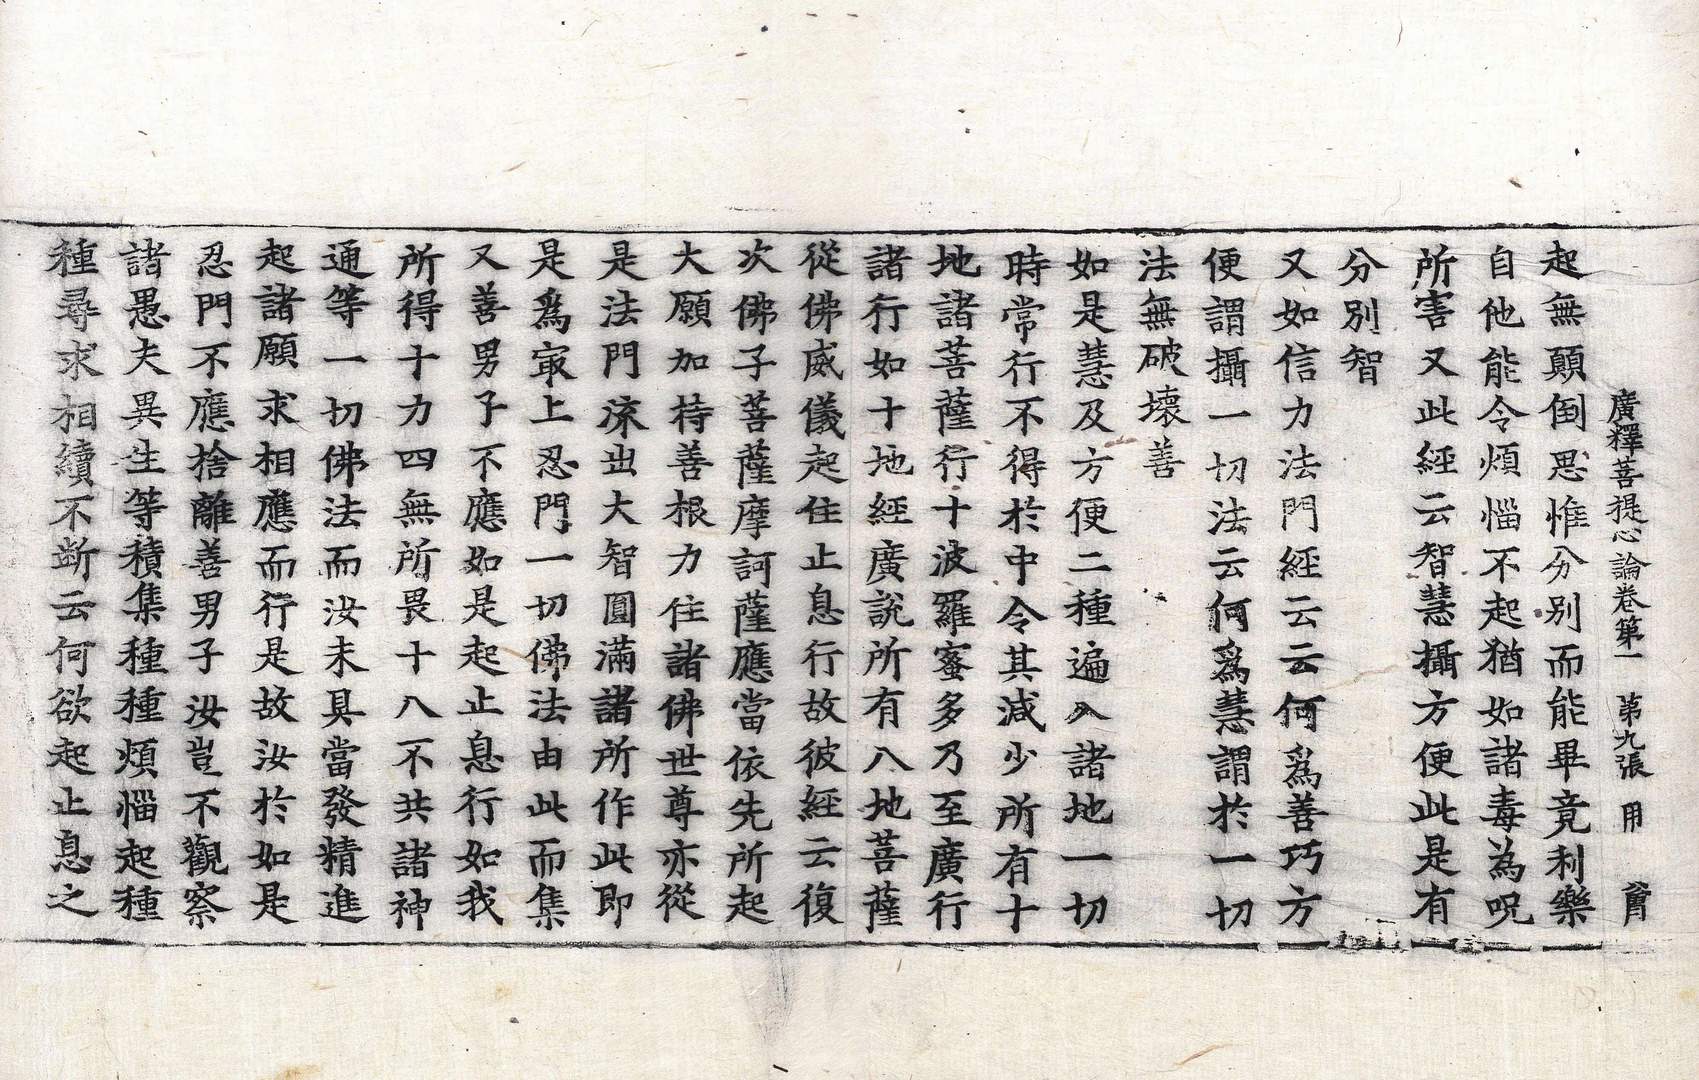 廣釋菩提心論卷第一 第九張 用
起無顛倒思惟分別而能畢竟利樂
自他能令煩惱不起猶如諸毒為呪
所害又此經云智慧攝方便此是有
分別智
又如信力法門經云云何爲善巧方
便謂攝一切法云何爲慧謂於一切
法無破壞善
如是慧及方便二種遍入諸地一切
時常行不得於中令其減少所有十
地諸菩薩行十波羅蜜多乃至廣行
諸行如十地經廣說所有八地菩薩
從佛威儀起住止息行故彼經云復
次佛子菩薩摩訶薩應當依先所起
大願加持善根力住諸佛世尊亦從
是法門流出大智圓滿諸所作此即
是爲冣上忍門一切佛法由此而集
又善男子不應如是起止息行如我
所得十力四無所畏十八不共諸神
通等一切佛法而汝未具當發精進
起諸願求相應而行是故汝於如是
忍門不應捨離善男子汝豈不觀察
諸愚夫異生等積集種種煩惱起種
種尋求相續不断云何欲起止息之